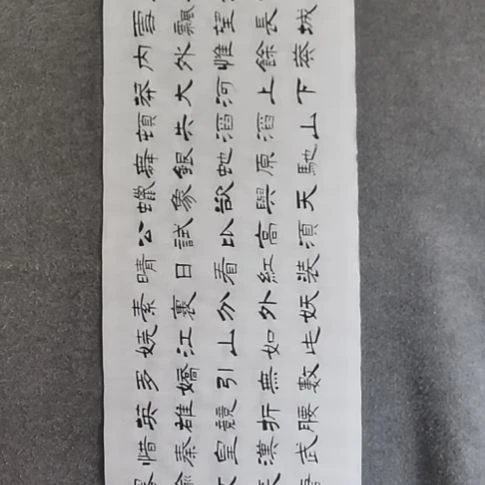 雪飄望長城
内外惟餘莽
莽大河上下
頓失滔滔山
舞銀蛇原馳
蠟象欲與天
公試比高須
晴日看紅裝
素裹分外妖
嬈江山如此
多嬌引無數
英雄競折腰
惜秦皇漢武